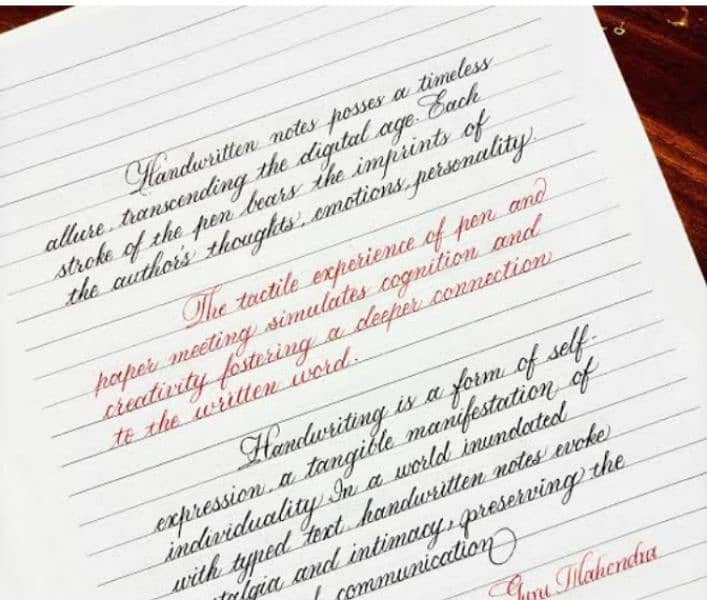 Handwritten notes posses a timeless
allure, transcending the digital age. Each
stroke of the pen bears the imprints of
the author's thoughts, emotions, personality
The tactile experience of pen and
paper meeting simulates cognition and
creativity fostering a deeper connection
to the written word.
Handwriting is a form of self-
expression, a tangible manifestation of
individuality In a world inundated
with typed text handwritten notes evoke
and intimacy, preserving the
communication
Guru Mahendra